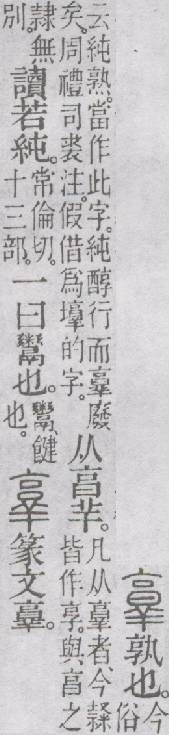 𦎫孰也。今俗
云純熟。當作此字。純醇行而𦎫廢矣。周禮司裘注。假借爲壿的字。从亯羊。凡从𦎫者、今隸皆作享。與亯之
隸無別。讀若純。常倫切。十三部。一曰鬻也。鬻、䭈也。𦎧篆文𦎫。